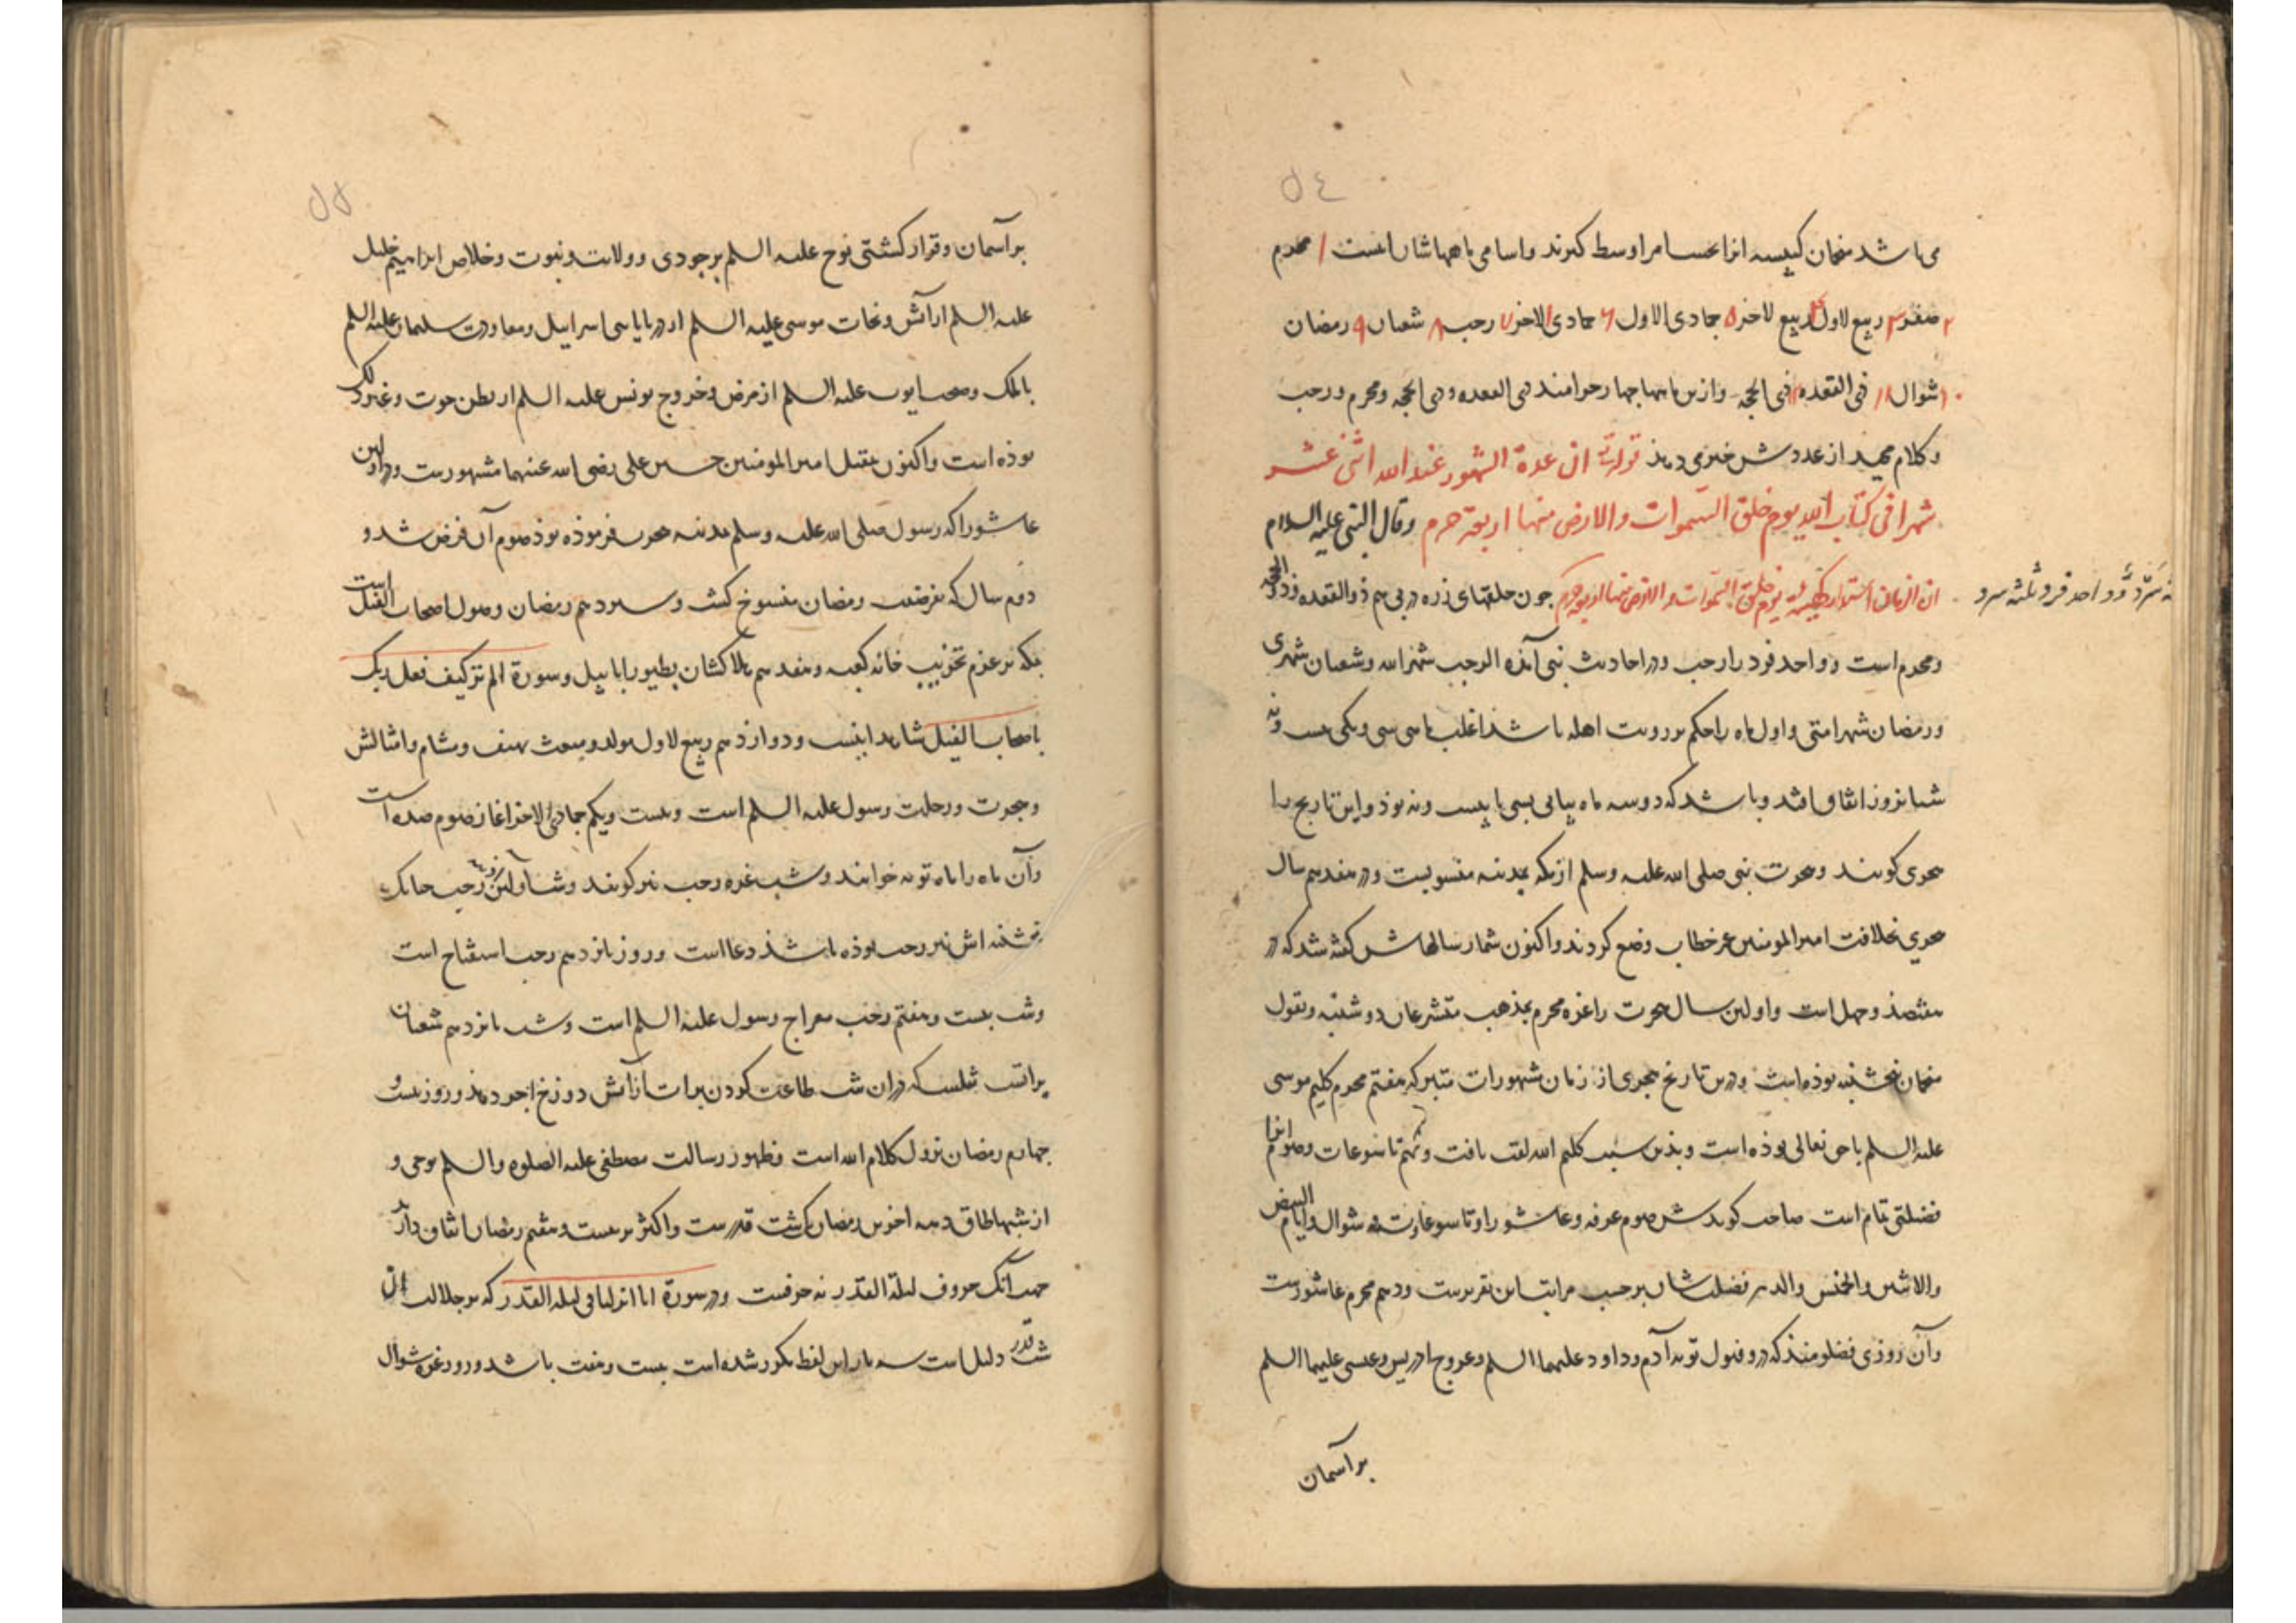 ٥٤
می باشد منجمان کبیسه انرا بحسب امر اوسط کیرند و اسامی ماهها شان اینست ۱ محرم
۲ صفر ۳ ربیع لاول ۴ ربیع لاخر ۵ جمادی الاول ۶ جمادی الاخر ۷ رجب ۸ شعبان ۹ رمضان
۱۰ شوال ۱۱ ذی القعده ۱۲ ذی الحجه و ازین ماهها چهار حرامند ذی القعده و ذی الحجه و محرم و رجب
و کلام مجید از عددش خبر می دهد قوله تعالی ان عدة الشهور عند الله اثنی عشر
شهرا فی کتاب الله یوم خلق السموات والارض منها اربعة حرم وقال النبی علیه السلام
ان الزمان استدار کهیئته یوم خلق السموات والارض منها اربعة حرم جون حلقهای زره در پی هم ذو القعده و ذو الحجه
ثلثه سرد و واحد فرد
و محرم است و واحد فرد را رجب و در احادیث نبی آمده الرجب شهر الله و شعبان شهری
و رمضان شهر امتی و اول ماه را حکم بر رویت اهله باشد اغلب ماهی سی و یکی بیست و نه
شبانروز اتفاق افتد و باشد که دو سه ماه پیاپی سی یا بیست و نه بوذ و این تاریخ را
هجری کویند و هجرت نبی صلی الله علیه وسلم از مکه بمدینه منسوبست و در هفدهم سال
هجری بخلافت امیر المومنین عمر خطاب وضع کردند و اکنون شمار سالهاش کفته شد که در
هفتصذ و چهل است و اولین سال هجرت را غره محرم بمذهب متشرعان دوشنبه و بقول
منجمان پنجشنبه بوذه است و درین تاریخ هجری از زمان شهورات متبرکه هفتم محرم کلیم موسی
علیه السلم با حق تعالی بوذه است و بذین سبب کلیم الله لقب یافت و نهم تاسوعاست و صوم انرا
فضیلتی تمام است صاحب کویذش صوم عرفه و عاشورا و تاسوعا و سته شوال و ایام البیض
والاثنین والخمیس والدهر فضیلت شان برحسب مراتب این تقریرست و دهم محرم عاشورست
و آن روزی فضلومنذ که درو قبول توبه آدم و داود علیهما السلم و عروج ادریس و عیسی علیهما السلم
بر آسمان
٥٥
بر آسمان و قرار کشتی نوح علیه السلم بر جودی و ولادت و نبوت و خلاص ابراهیم خلیل
علیه السلم از آتش و نجات موسی علیه السلم از دریا با بنی اسرائیل و معاودت سلیمان علیه السلم
با ملک و صحت ایوب علیه السلم از مرض و خروج یونس علیه السلم از بطن حوت و غیر ذلک
بوذه است و اکنون بمقتل امیر المومنین حسین علی رضی الله عنهما مشهورست و در اولین
عاشورا که رسول صلی الله علیه وسلم بمدینه هجرت فرموذه بوذ صوم آن فرض شد و
دوم سال که بفرضیت رمضان منسوخ کشت و سیزدهم رمضان وصول اصحاب الفیل است
بمکه بر عزم تخریب خانه کعبه و هفدهم هلاکشان بطیور ابابیل و سورة الم تر کیف فعل ربک
باصحاب الفیل شاهد اینست و دوازدهم ربیع لاول مولد و مبعث
و هجرت و رحلت رسول علیه السلم است و بیست و یکم جمادی الاخر اغاز صوم صده است
و آن ماه را ماه توبه خوانند و شب غره رجب نیز کویند و شب آولین آذینه رجب چنانک
پنجشنبه اش نیز رجب بوذه باشذ دعا است و روز پانزدهم رجب استفتاح است
و شب بیست و هفتم رجب معراج رسول علیه السلم است و شب پانزدهم شعبان
براتست شبیست که دران شب طاعت کردن برات از آتش دوزخ اجر دهذ و روز بیست و
چهارم رمضان نزول کلام الله است و ظهور رسالت مصطفی علیه الصلوه والسلم بوحی و
از شبها طاق دهه اخرین رمضان یک شب قدرست و اکثر بر بیست و هفتم رمضان اتفاق دارند
جهت آنک حروف لیلة القدر نه حرفست و در سورة انا انزلناه فی لیلة القدر که بر جلالت ان
شب قدر دلیل است سه بار این لفظ مکرر شده است بیست و هفت باشد و روز غره شوال